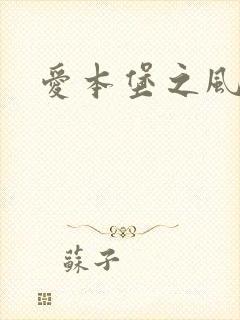 愛本堡之風
蘇子